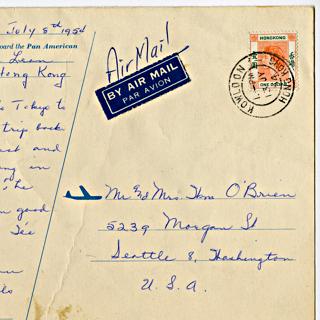 July 8th 1954
board the Pan American
Leen
Hong Kong
's Tokyo to
trip back
est and
ing in
"he
n good
Tee
Air Mail
BY AIR MAIL
PAR AVION
HONGKONG
ONE DOLLAR
KOWLOON
HONG KONG
Mr & Mrs. Thos O'Brien
5239 Morgan St
Seattle 8, Washington
U.S.A.